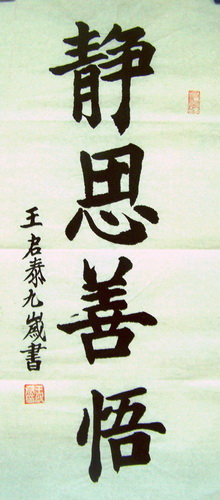 静思善悟
王启泰九岁書